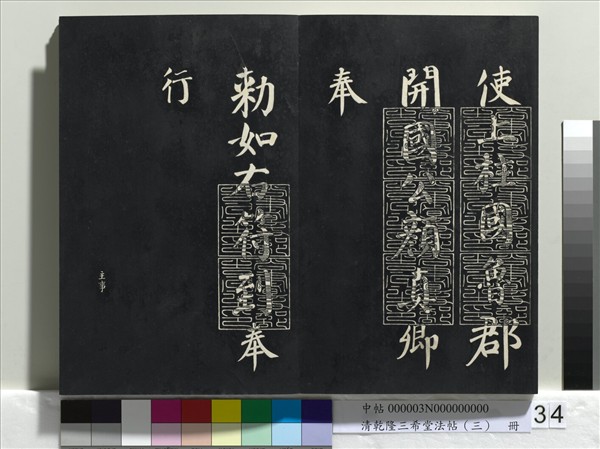 使上柱國魯郡
開國公顏真卿
奉
勅如右符到奉
行
主事
中帖 000003N000000000
清乾隆三希堂法帖（三） 冊
34